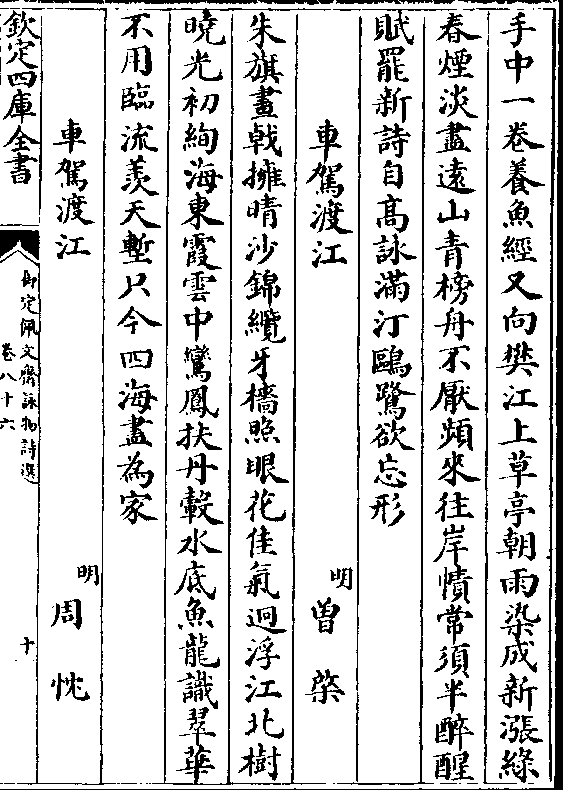 手中一卷養魚經又向樊江上草亭朝雨染成新漲綠
春煙淡盡遠山青榜舟不厭頻來往岸幘常須半醉醒
賦罷新詩自髙詠滿汀鷗鷺欲忘形
車駕渡江 明 曾棨
朱旗畫戟擁晴沙錦纜牙檣照眼花佳氣迥浮江北樹
曉光初絢海東霞雲中鸞鳳扶丹轂水底魚龍識翠華
不用臨流羨天塹只今四海盡為家
車駕渡江 明 周忱
欽定四庫全書
御定佩文齋詠物詩選
卷八十六
十